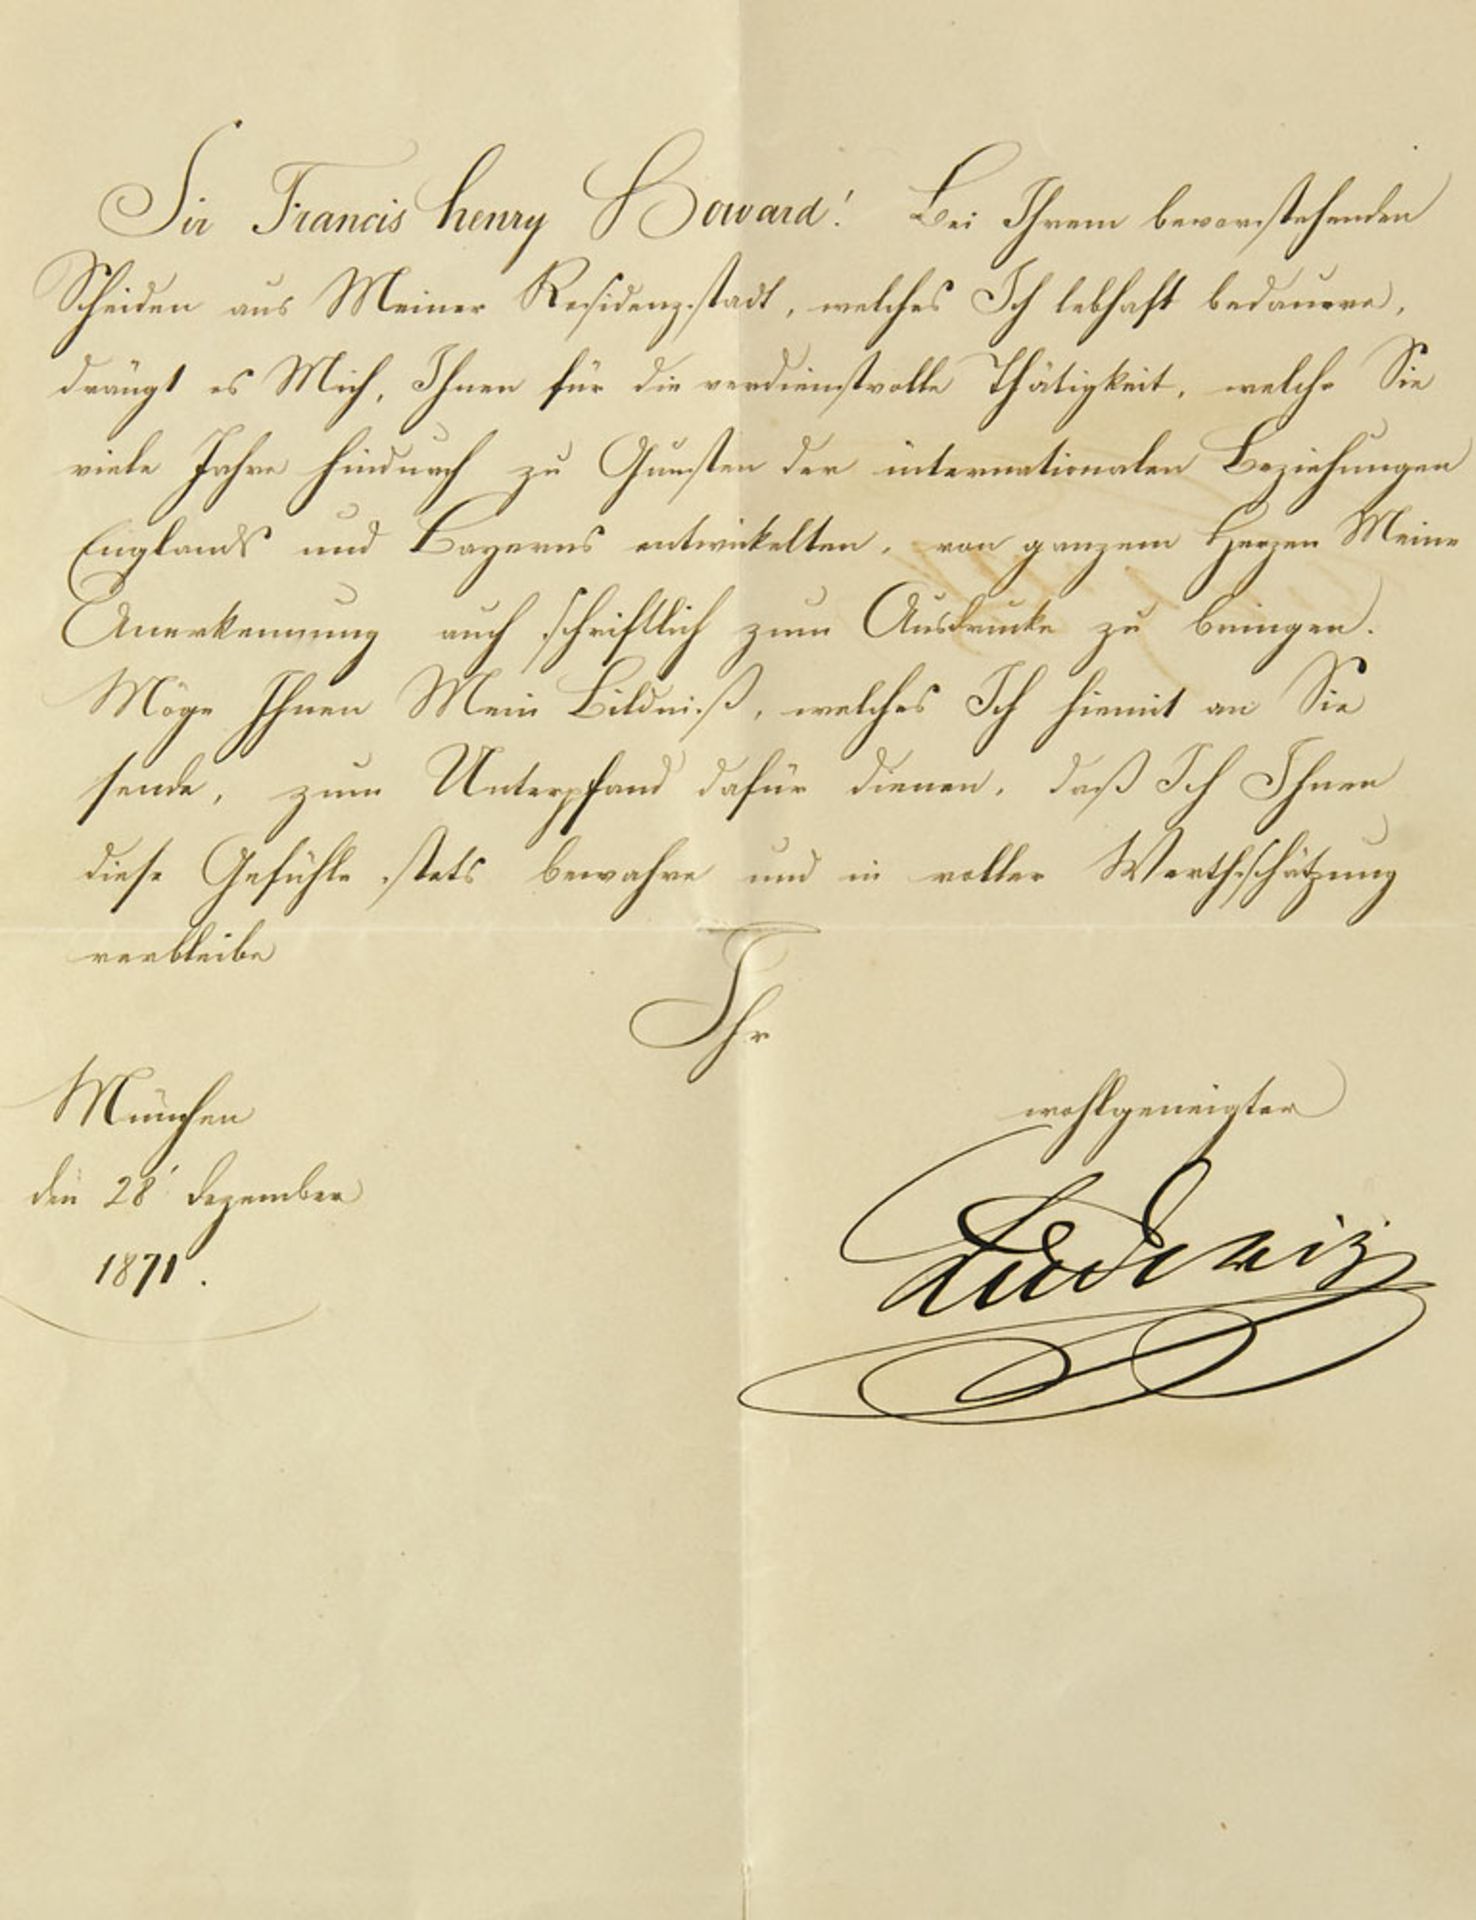 Sir Francis Henry Howard! Bei Ihrem bevorstehenden
Scheiden aus Meiner Residenzstadt, welches Ich lebhaft bedauere,
drängt es Mich, Ihnen für die verdienstvolle Thätigkeit, welche Sie
viele Jahre hindurch zu Gunsten der internationalen Beziehungen
Englands und Bayerns entwickelten, von ganzem Herzen Meine
Anerkennung auch schriftlich zum Ausdrucke zu bringen.
Möge Ihnen Mein Bildniß, welches Ich hiemit an Sie
sende, zum Unterpfand dafür dienen, daß Ich Ihnen
diese Gefühle stets bewahre und in voller Werthschätzung
verbleibe
Ihr
wohlgeneigter
Ludwig
München
den 28' Dezember
1871.